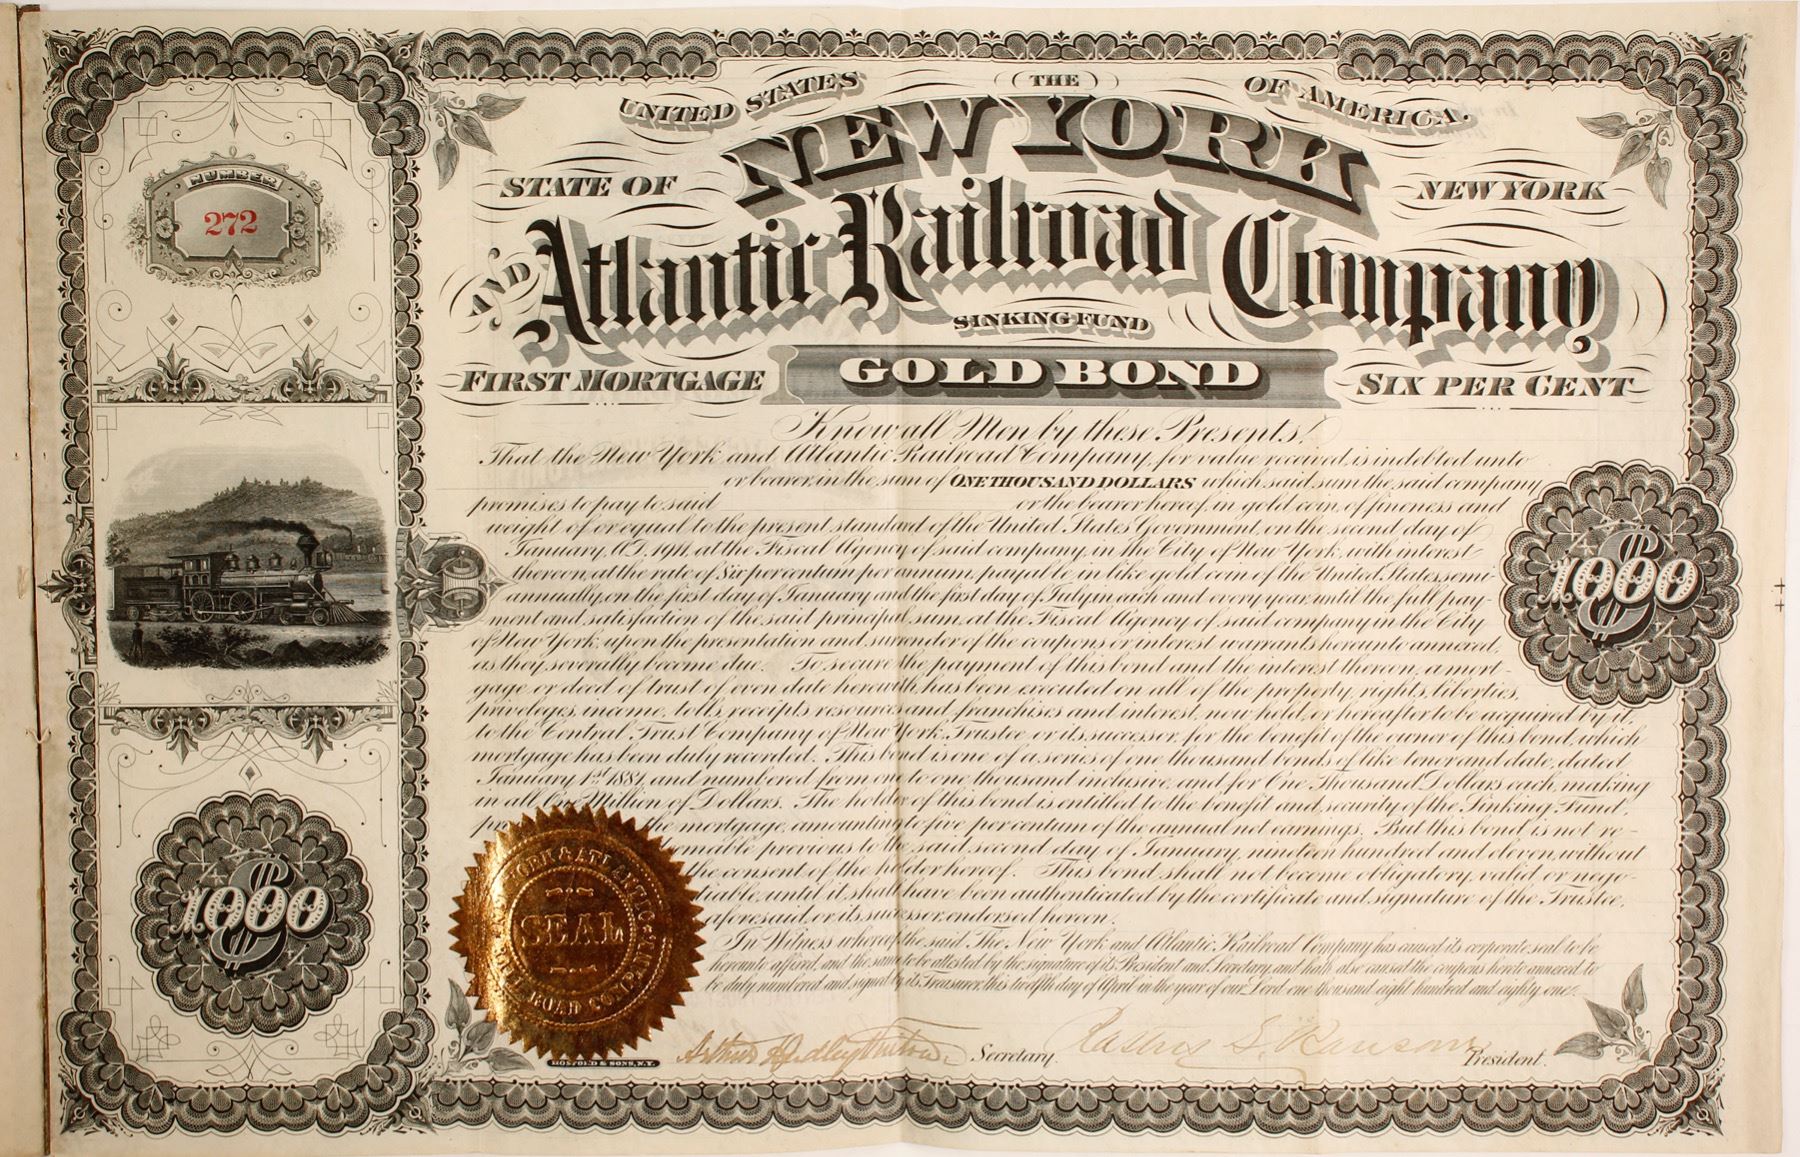 NUMBER
272
$1000
UNITED STATES (THE) OF AMERICA.
STATE OF NEW YORK NEW YORK
AND Atlantic Railroad Company
SINKING FUND
FIRST MORTGAGE GOLD BOND SIX PER CENT
Know all Men by these Presents!
That the New York and Atlantic Railroad Company, for value received, is indebted unto
or bearer, in the sum of ONE THOUSAND DOLLARS which said sum the said company
promises to pay to said or the bearer hereof, in gold coin, of fineness and
weight of or equal to the present standard of the United States Government, on the second day of
January, A.D. 1911, at the Fiscal Agency of said company, in the City of New York, with interest
thereon, at the rate of Six per centum per annum, payable in like gold coin of the United States, semi-
annually, on the first day of January and the first day of July in each and every year, until the full pay-
ment and satisfaction of the said principal sum, at the Fiscal Agency of said company in the City
of New York, upon the presentation and surrender of the coupons or interest warrants hereunto annexed,
as they severally become due. To secure the payment of this bond and the interest thereon, a mort-
gage or deed of trust of even date herewith, has been executed on all of the property, rights, liberties,
privileges, income, tolls, receipts resources and franchises and interest, now held, or hereafter to be acquired by it,
to the Central Trust Company of New York, Trustee, or its successor, for the benefit of the owner of this bond, which
mortgage has been duly recorded. This bond is one of a series of one thousand bonds of like tenor and date, dated
January 1st 1881, and numbered from one to one thousand inclusive, and for One Thousand Dollars each, making
in all One Million of Dollars. The holder of this bond is entitled to the benefit and security of the Sinking Fund,
the mortgage, amounting to five per centum of the annual net earnings. But this bond is not re-
previous to the said second day of January, nineteen hundred and eleven, without
the consent of the holder hereof. This bond shall not become obligatory, valid or nego-
tiable, until it shall have been authenticated by the certificate and signature of the Trustee,
aforesaid, or its successor, endorsed hereon.
In Witness whereof the said, The New York and Atlantic Railroad Company has caused its corporate seal to be
hereunto affixed, and the same to be attested by the signature of its President and Secretary, and hath also caused the coupons hereto annexed to
be duly numbered and signed by its Treasurer, this twelfth day of April in the year of our Lord one thousand eight hundred and eighty one.
$1000
$1000
YORK & ATLANTIC
RAILROAD COMPANY
SEAL
HOSFORD & SONS, N.Y.
Arthur Secretary. President.